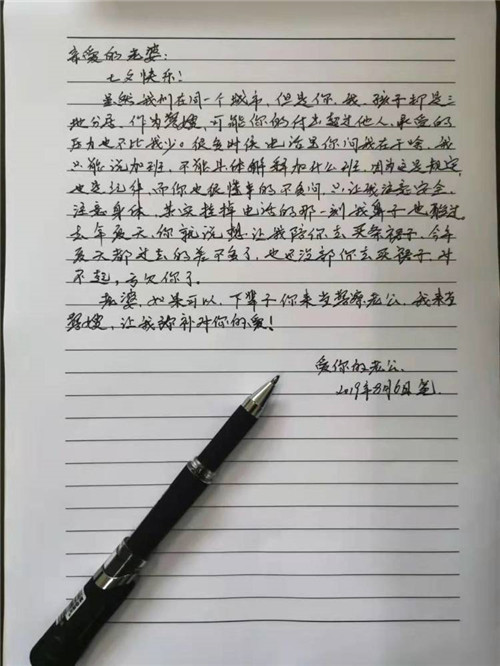 亲爱的老婆:
七夕快乐!
虽然我们在同一个城市,但是你、我、孩子却是三
地分居。作为警嫂,可能你的付出超过他人,承受的
压力也不比我少。很多时候电话里你问我在干啥,我
只能说加班,不能具体解释加什么班,因为这是规定,
也是纪律,而你也很懂事的不多问,只让我注意安全、
注意身体,其实挂掉电话的那一刻我鼻子也酸过
去年夏天,你就说想让我陪你去买条裙子,今年
夏天都过去的差不多了,也还没陪你去买裙子,对
不起,亏欠你了。
老婆,如果可以,下辈子你来当警察老公,我来当
警嫂,让我弥补对你的爱!
爱你的老公
2019年8月6日